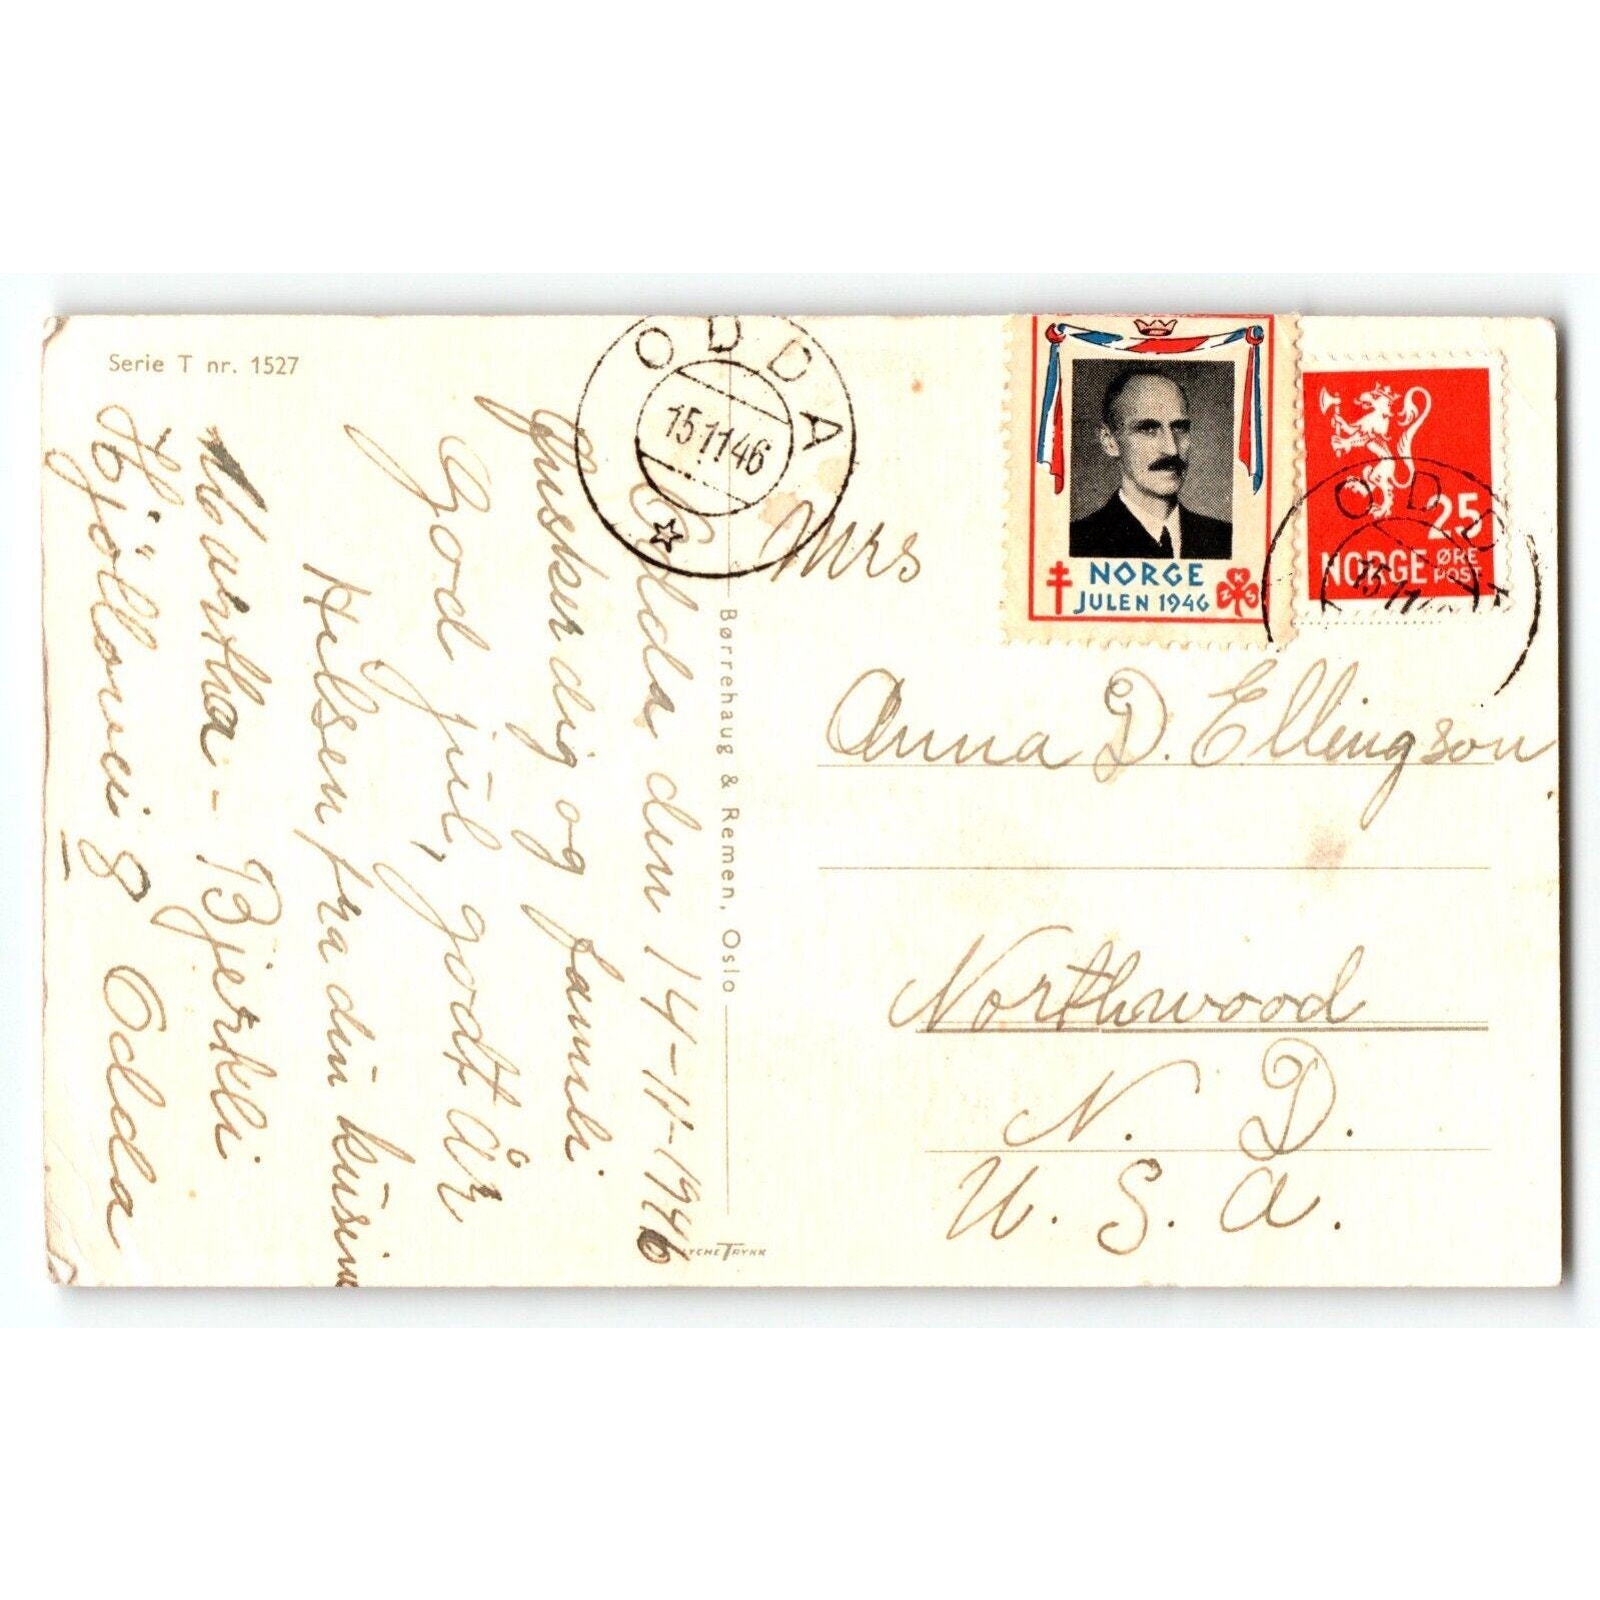 Serie T nr. 1527
ODDA
15.11.46
Odda den 14-11-1946
ønsker dig og famili
God jul, godt år
Hilsen fra din kusine
Martha - Bjerkli
Hjöllovei 8 Odda
Børrehaug & Remen, Oslo
NORGE
JULEN 1946
25
NORGE ØRE POST
ODDA
15.11
Mrs
Anna D. Ellingson
Northwood
N. D.
U. S. A.